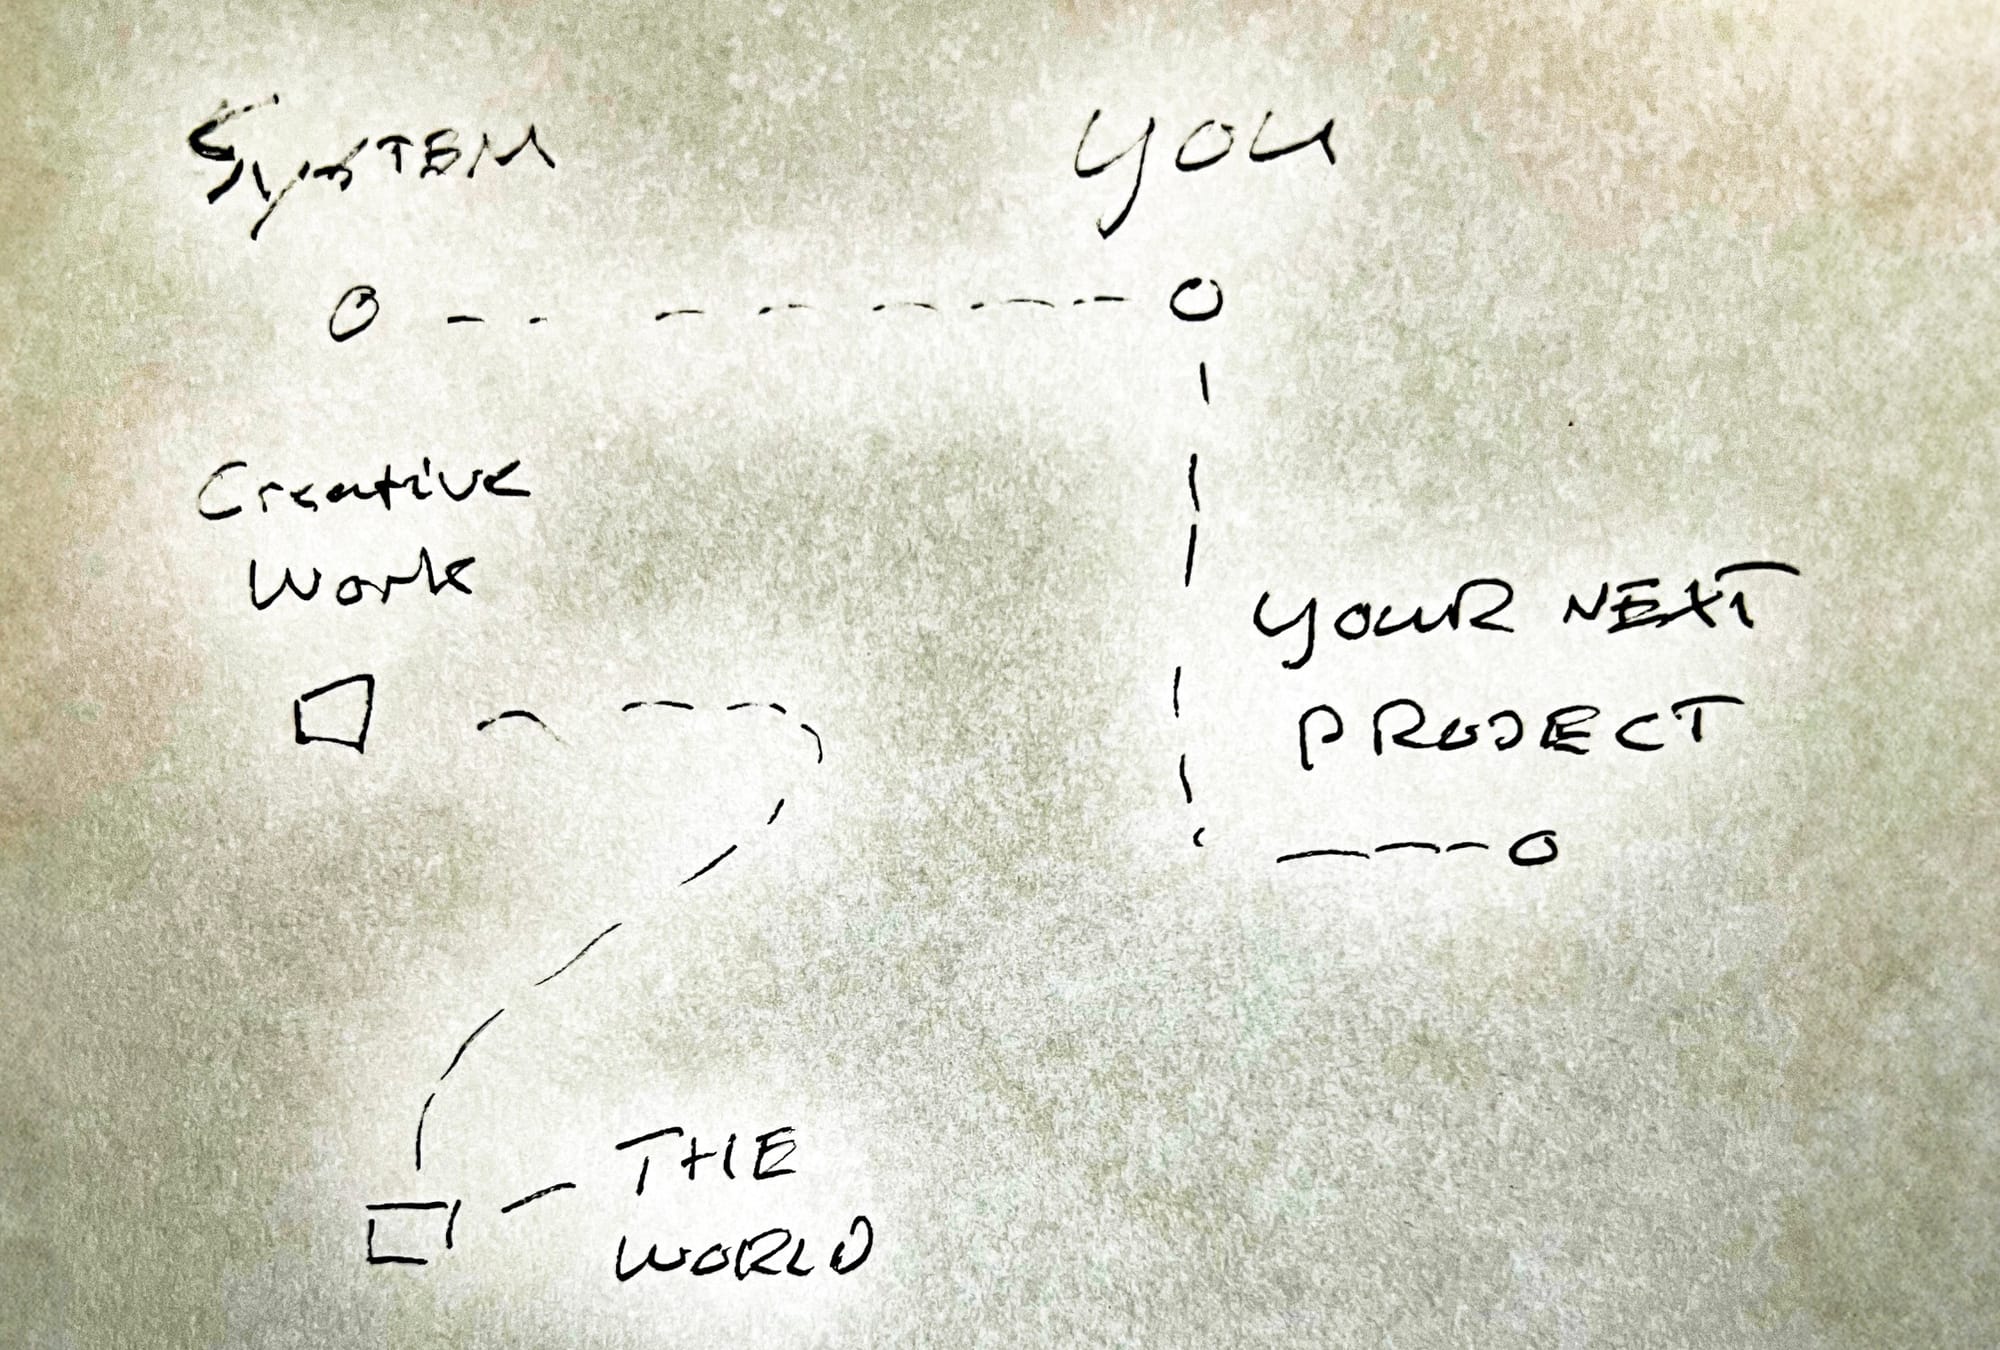 SYSTEM
YOU
Creative
Work
YOUR NEXT
PROJECT
THE
WORLD